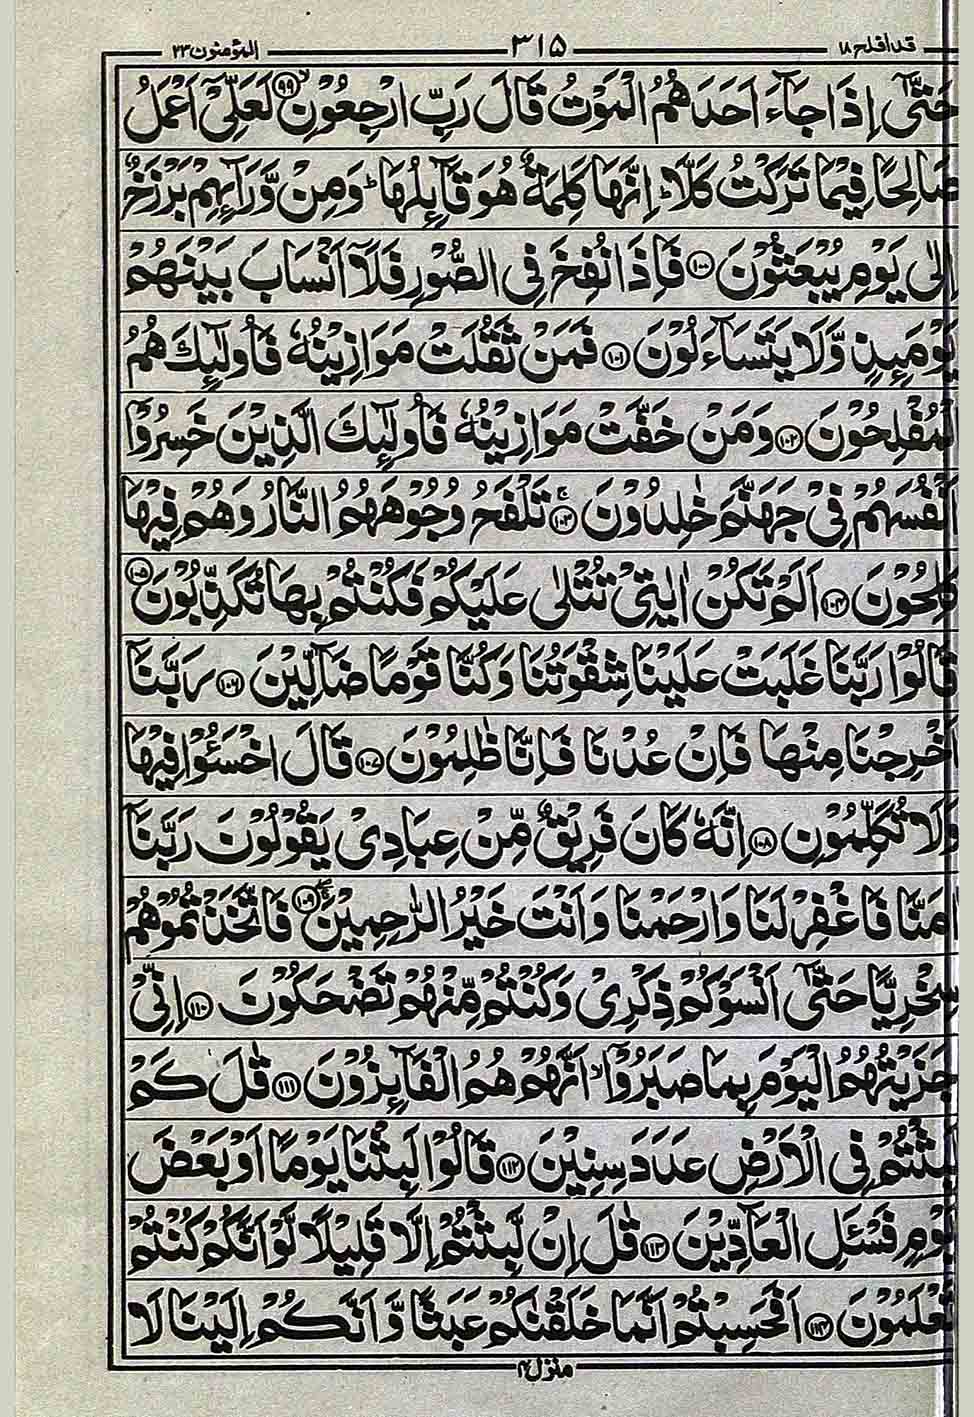 قد افلح ۱۸ ۳۱۵ المؤمنون ۲۳
حَتّٰۤى اِذَا جَآءَ اَحَدَهُمُ الْمَوْتُ قَالَ رَبِّ ارْجِعُوْنِ ۙ﴿۹۹﴾ لَعَلِّيْۤ اَعْمَلُ
صَالِحًا فِيْمَا تَرَكْتُ كَلَّا ؕ اِنَّهَا كَلِمَةٌ هُوَ قَآئِلُهَا ؕ وَمِنْ وَّرَآئِهِمْ بَرْزَخٌ
اِلٰى يَوْمِ يُبْعَثُوْنَ ﴿۱۰۰﴾ فَاِذَا نُفِخَ فِي الصُّوْرِ فَلَاۤ اَنْسَابَ بَيْنَهُمْ
يَوْمَئِذٍ وَّلَا يَتَسَآءَلُوْنَ ﴿۱۰۱﴾ فَمَنْ ثَقُلَتْ مَوَازِيْنُهٗ فَاُولٰٓئِكَ هُمُ
الْمُفْلِحُوْنَ ﴿۱۰۲﴾ وَمَنْ خَفَّتْ مَوَازِيْنُهٗ فَاُولٰٓئِكَ الَّذِيْنَ خَسِرُوْۤا
اَنْفُسَهُمْ فِيْ جَهَنَّمَ خٰلِدُوْنَ ۚ﴿۱۰۳﴾ تَلْفَحُ وُجُوْهَهُمُ النَّارُ وَهُمْ فِيْهَا
كٰلِحُوْنَ ﴿۱۰۴﴾ اَلَمْ تَكُنْ اٰيٰتِيْ تُتْلٰى عَلَيْكُمْ فَكُنْتُمْ بِهَا تُكَذِّبُوْنَ ﴿۱۰۵﴾
قَالُوْا رَبَّنَا غَلَبَتْ عَلَيْنَا شِقْوَتُنَا وَكُنَّا قَوْمًا ضَآلِّيْنَ ﴿۱۰۶﴾ رَبَّنَاۤ
اَخْرِجْنَا مِنْهَا فَاِنْ عُدْنَا فَاِنَّا ظٰلِمُوْنَ ﴿۱۰۷﴾ قَالَ اخْسَئُوْا فِيْهَا
وَلَا تُكَلِّمُوْنِ ﴿۱۰۸﴾ اِنَّهٗ كَانَ فَرِيْقٌ مِّنْ عِبَادِيْ يَقُوْلُوْنَ رَبَّنَاۤ
اٰمَنَّا فَاغْفِرْ لَنَا وَارْحَمْنَا وَاَنْتَ خَيْرُ الرّٰحِمِيْنَ ۚۖ﴿۱۰۹﴾ فَاتَّخَذْتُمُوْهُمْ
سِخْرِيًّا حَتّٰۤى اَنْسَوْكُمْ ذِكْرِيْ وَكُنْتُمْ مِّنْهُمْ تَضْحَكُوْنَ ﴿۱۱۰﴾ اِنِّيْ
جَزَيْتُهُمُ الْيَوْمَ بِمَا صَبَرُوْۤا ۙ اَنَّهُمْ هُمُ الْفَآئِزُوْنَ ﴿۱۱۱﴾ قٰلَ كَمْ
لَبِثْتُمْ فِي الْاَرْضِ عَدَدَ سِنِيْنَ ﴿۱۱۲﴾ قَالُوْا لَبِثْنَا يَوْمًا اَوْ بَعْضَ
يَوْمٍ فَسْئَلِ الْعَآدِّيْنَ ﴿۱۱۳﴾ قٰلَ اِنْ لَّبِثْتُمْ اِلَّا قَلِيْلًا لَّوْ اَنَّكُمْ كُنْتُمْ
تَعْلَمُوْنَ ﴿۱۱۴﴾ اَفَحَسِبْتُمْ اَنَّمَا خَلَقْنٰكُمْ عَبَثًا وَّاَنَّكُمْ اِلَيْنَا لَا
منزل ۴